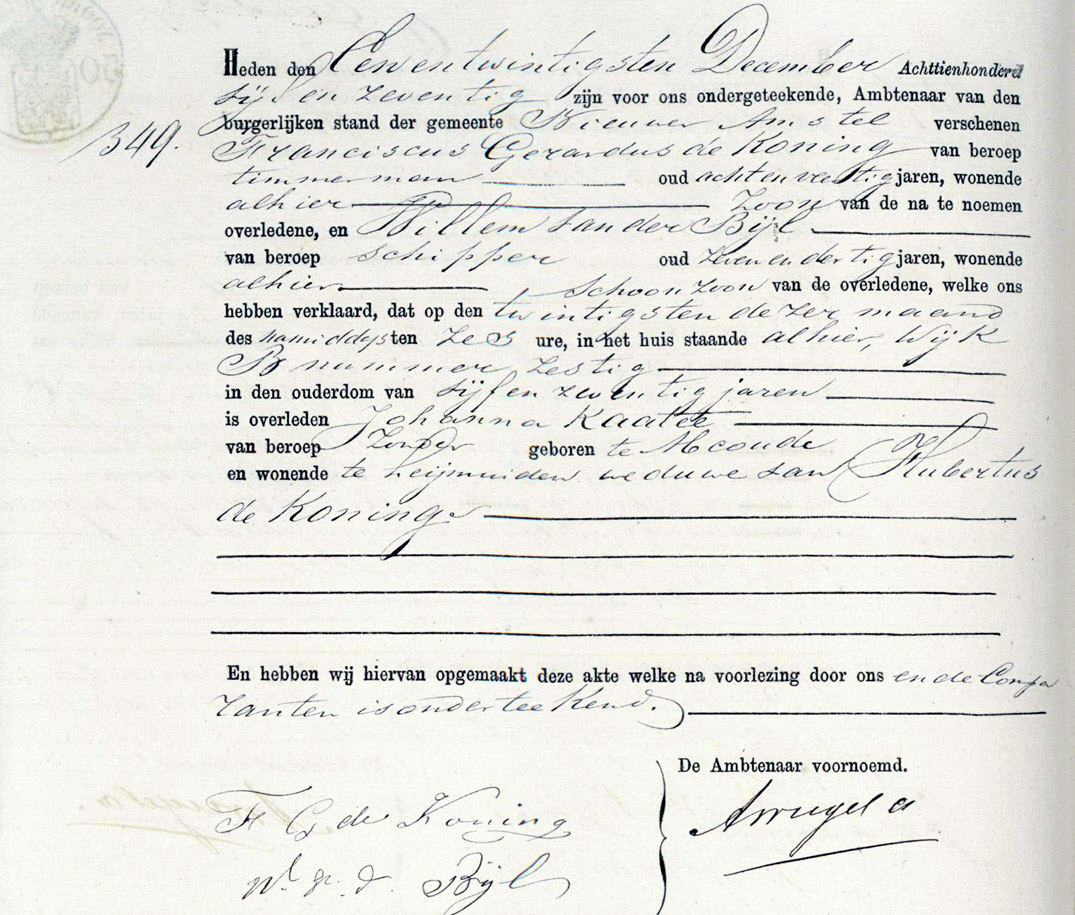 Heden den Een en twintigsten December Achttienhonderd
Vijf en zeventig zijn voor ons ondergeteekende, Ambtenaar van den
349. burgerlijken stand der gemeente Nieuwer Amstel verschenen
Franciscus Gerardus de Koning van beroep
timmerman oud acht en veertig jaren, wonende
alhier Zoon van de na te noemen
overledene, en Willem van der Bijl
van beroep schipper oud zeven en dertig jaren, wonende
alhier Schoonzoon van de overledene, welke ons
hebben verklaard, dat op den twintigsten dezer maand
des namiddags ten zes ure, in het huis staande alhier, Wijk
B nummer Zestig
in den ouderdom van vijf en zeventig jaren
is overleden Johanna Kaatee
van beroep Zonder geboren te Abcoude
en wonende te weduwe van Hubertus
de Koning
En hebben wij hiervan opgemaakt deze akte welke na voorlezing door ons en de Compa
ranten is onderteekend.
De Ambtenaar voornoemd.
F G de Koning
W. v. d. Bijl